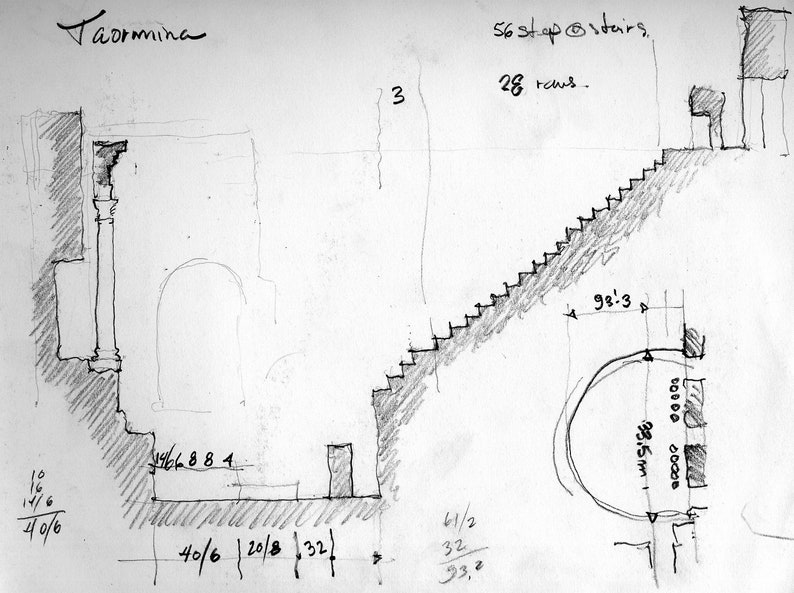 Taormina
56 step @ stairs.
28 rows.
3
93'.3
33,5 m
14/6 6 8 8 4
10
16
14/6
40/6
40/6 20/8 32
61/2
32
93.2